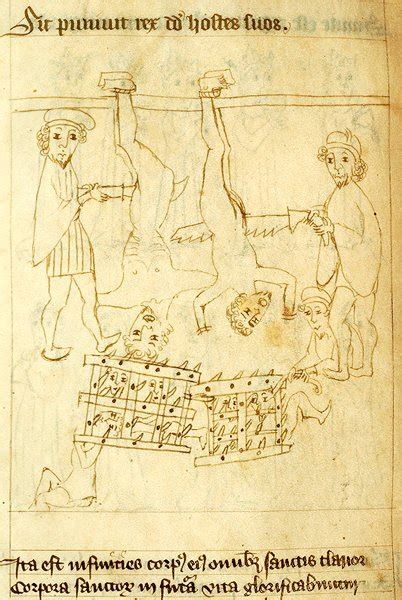 Sic puniuit rex dd hostes suos.
Ita est infinities corpꝰ eiꝰ omnibꝫ sanctis clarior
Corpora sanctoꝝ in futa vita glorificabuntur